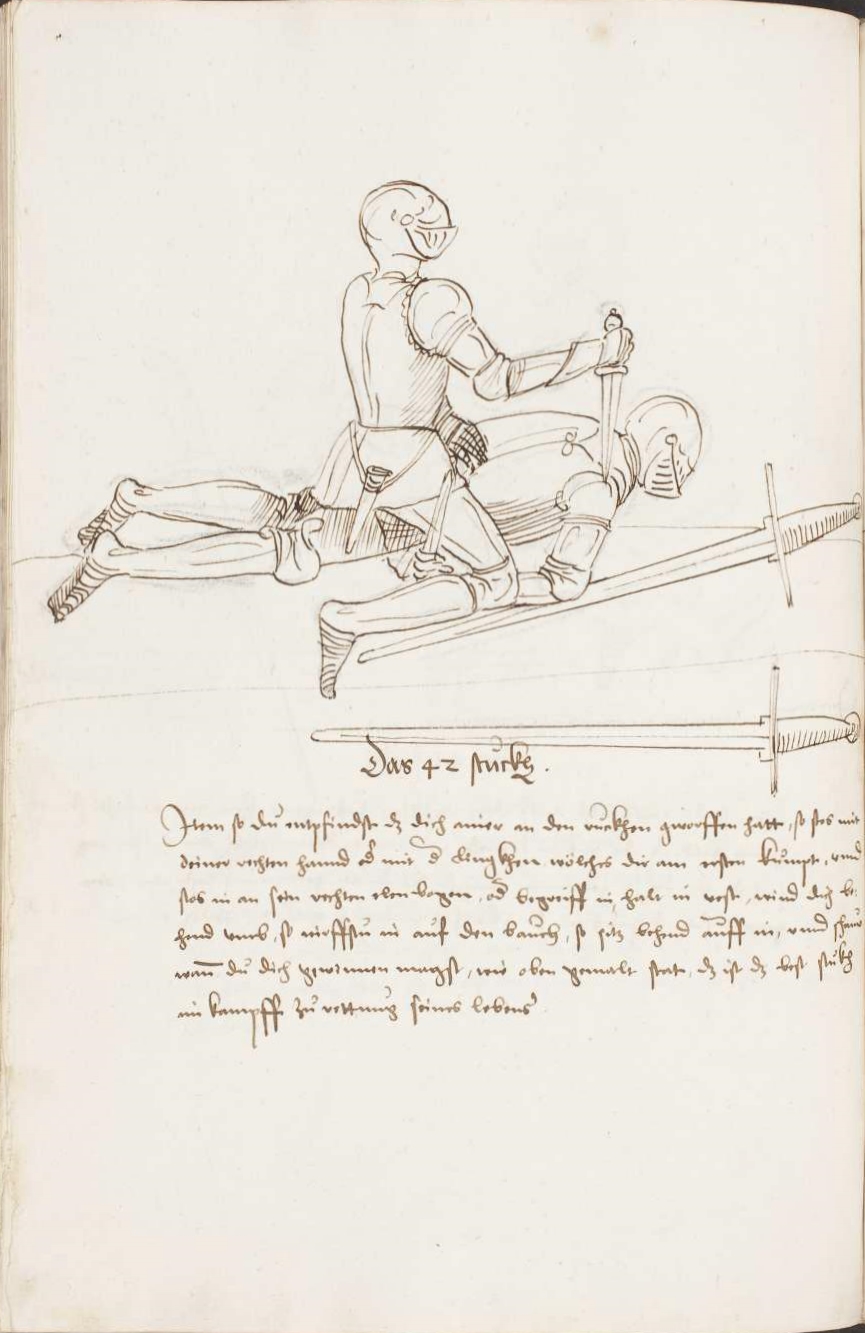 Das 42 stuckh .
Item so du entpfindst dz dich ainer an den ruckhen gworffen hatt, so stos mit
deiner rechten hannd od mit d lingkhen wölches dir am ersten kumpt, vnd
stos in an sein rechten elenbogen, od begreiff in, halt in vest, wind dich be:
hend vmb, so wirffstu in auf den bauch, so sitz behend auff in, vnnd schaw
wann du dich gewinnen magst, wie oben gemalt stat, dz ist dz best stuckh
im kampff zu rettung seines lebens